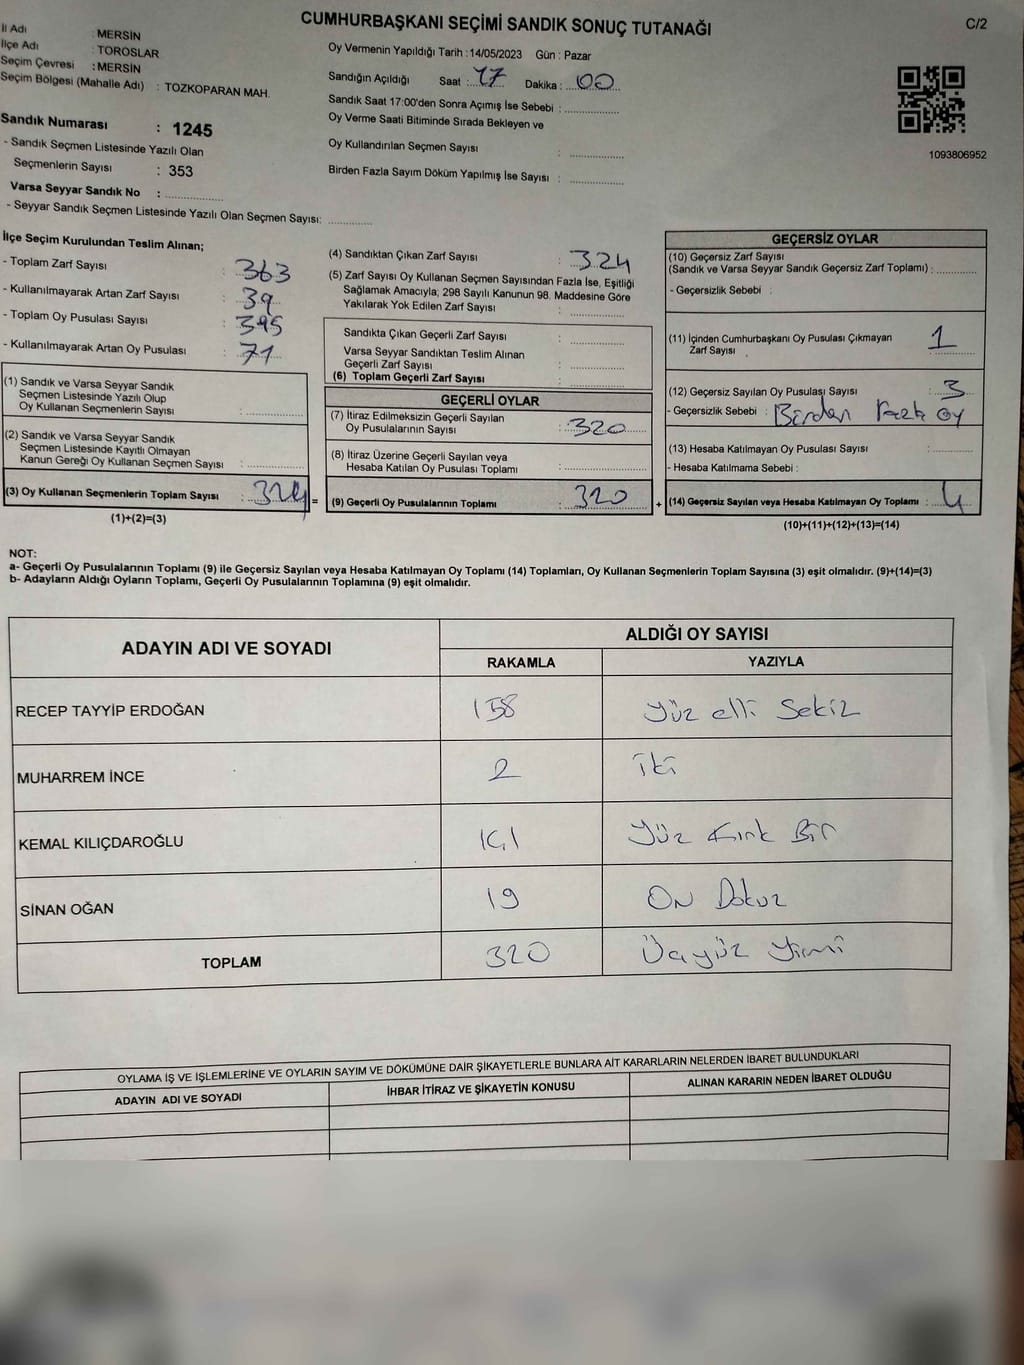 CUMHURBAŞKANI SEÇİMİ SANDIK SONUÇ TUTANAĞI
C/2
İl Adı : MERSİN
İlçe Adı : TOROSLAR
Seçim Çevresi : MERSİN
Seçim Bölgesi (Mahalle Adı) : TOZKOPARAN MAH.
Sandık Numarası : 1245
- Sandık Seçmen Listesinde Yazılı Olan
Seçmenlerin Sayısı : 353
Varsa Seyyar Sandık No :
- Seyyar Sandık Seçmen Listesinde Yazılı Olan Seçmen Sayısı:
Oy Vermenin Yapıldığı Tarih : 14/05/2023 Gün : Pazar
Sandığın Açıldığı Saat : 17 Dakika : 00
Sandık Saat 17:00'den Sonra Açımış İse Sebebi :
Oy Verme Saati Bitiminde Sırada Bekleyen ve
Oy Kullandırılan Seçmen Sayısı :
Birden Fazla Sayım Döküm Yapılmış İse Sayısı :
1093806952
İlçe Seçim Kurulundan Teslim Alınan;
- Toplam Zarf Sayısı : 363
- Kullanılmayarak Artan Zarf Sayısı : 39
- Toplam Oy Pusulası Sayısı : 395
- Kullanılmayarak Artan Oy Pusulası : 71
(1) Sandık ve Varsa Seyyar Sandık
Seçmen Listesinde Yazılı Olup
Oy Kullanan Seçmenlerin Sayısı :
(2) Sandık ve Varsa Seyyar Sandık
Seçmen Listesinde Kayıtlı Olmayan
Kanun Gereği Oy Kullanan Seçmen Sayısı :
(3) Oy Kullanan Seçmenlerin Toplam Sayısı : 324 =
(1)+(2)=(3)
(4) Sandıktan Çıkan Zarf Sayısı : 324
(5) Zarf Sayısı Oy Kullanan Seçmen Sayısından Fazla İse, Eşitliği
Sağlamak Amacıyla; 298 Sayılı Kanunun 98. Maddesine Göre
Yakılarak Yok Edilen Zarf Sayısı :
Sandıkta Çıkan Geçerli Zarf Sayısı :
Varsa Seyyar Sandıktan Teslim Alınan
Geçerli Zarf Sayısı :
(6) Toplam Geçerli Zarf Sayısı :
GEÇERLİ OYLAR
(7) İtiraz Edilmeksizin Geçerli Sayılan
Oy Pusulalarının Sayısı : 320
(8) İtiraz Üzerine Geçerli Sayılan veya
Hesaba Katılan Oy Pusulası Toplamı :
(9) Geçerli Oy Pusulalarının Toplamı : 320 +
GEÇERSİZ OYLAR
(10) Geçersiz Zarf Sayısı
(Sandık ve Varsa Seyyar Sandık Geçersiz Zarf Toplamı) :
- Geçersizlik Sebebi :
(11) İçinden Cumhurbaşkanı Oy Pusulası Çıkmayan
Zarf Sayısı : 1
(12) Geçersiz Sayılan Oy Pusulası Sayısı : 3
- Geçersizlik Sebebi : Birden Fazla Oy
(13) Hesaba Katılmayan Oy Pusulası Sayısı :
- Hesaba Katılmama Sebebi :
(14) Geçersiz Sayılan veya Hesaba Katılmayan Oy Toplamı : 4
(10)+(11)+(12)+(13)=(14)
NOT:
a- Geçerli Oy Pusulalarının Toplamı (9) ile Geçersiz Sayılan veya Hesaba Katılmayan Oy Toplamı (14) Toplamları, Oy Kullanan Seçmenlerin Toplam Sayısına (3) eşit olmalıdır. (9)+(14)=(3)
b- Adayların Aldığı Oyların Toplamı, Geçerli Oy Pusulalarının Toplamına (9) eşit olmalıdır.
ADAYIN ADI VE SOYADI ALDIĞI OY SAYISI
RAKAMLA YAZIYLA
RECEP TAYYİP ERDOĞAN 158 Yüz elli Sekiz
MUHARREM İNCE 2 iki
KEMAL KILIÇDAROĞLU 141 Yüz Kırk Bir
SİNAN OĞAN 19 On Dokuz
TOPLAM 320 Üçyüz Yirmi
OYLAMA İŞ VE İŞLEMLERİNE VE OYLARIN SAYIM VE DÖKÜMÜNE DAİR ŞİKAYETLERLE BUNLARA AİT KARARLARIN NELERDEN İBARET BULUNDUKLARI
ADAYIN ADI VE SOYADI İHBAR İTİRAZ VE ŞİKAYETİN KONUSU ALINAN KARARIN NEDEN İBARET OLDUĞU